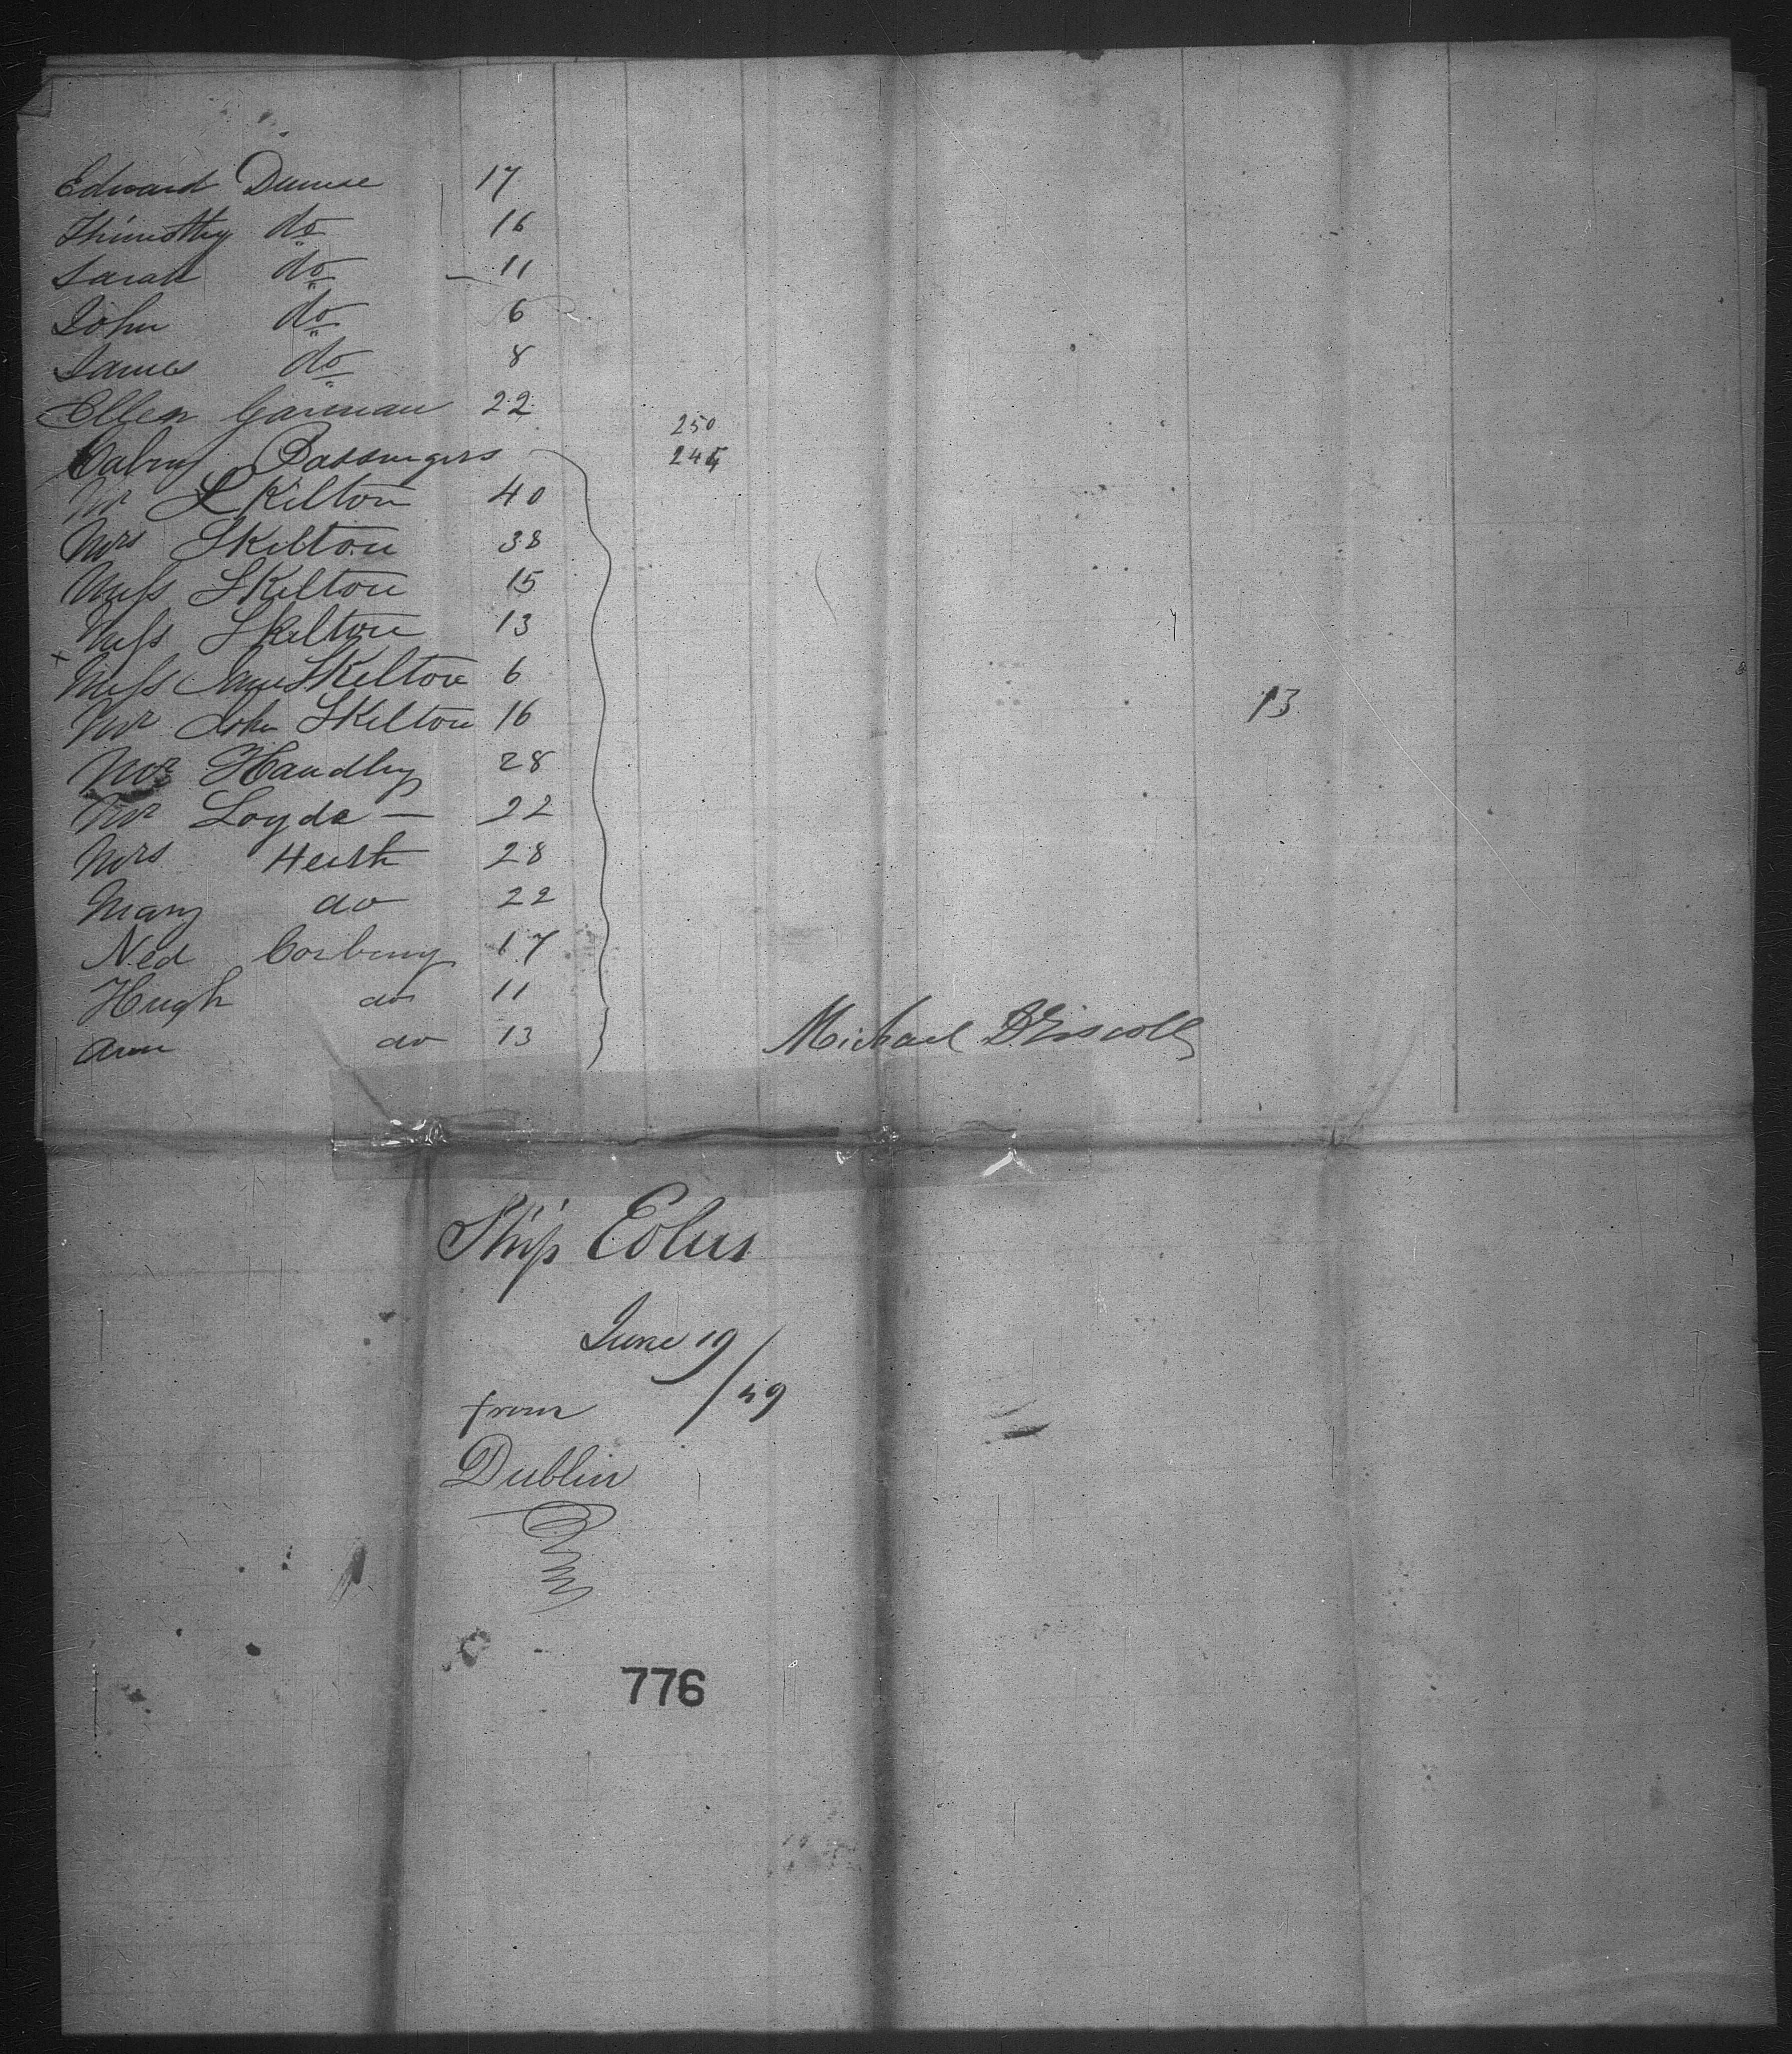 Edward Dunne 17
Thimothy do 16
Sarah do — 11
John do 6
James do 8
Ellen Gorman 22
250
Cabin Passengers
244
Mr Skilton 40
Mrs Skilton 38
Miss Skilton 15
Miss Skilton 13
x Miss Jane Skilton 6
Mr John Skilton 16
13
Mr Handley 28
Mr Loyde — 22
Mrs 28
Mary do 22
Ned 17
Hugh do 11
Ann do 13
Michael Driscoll
Ship Eolus
June 19
/49
from
Dublin
776